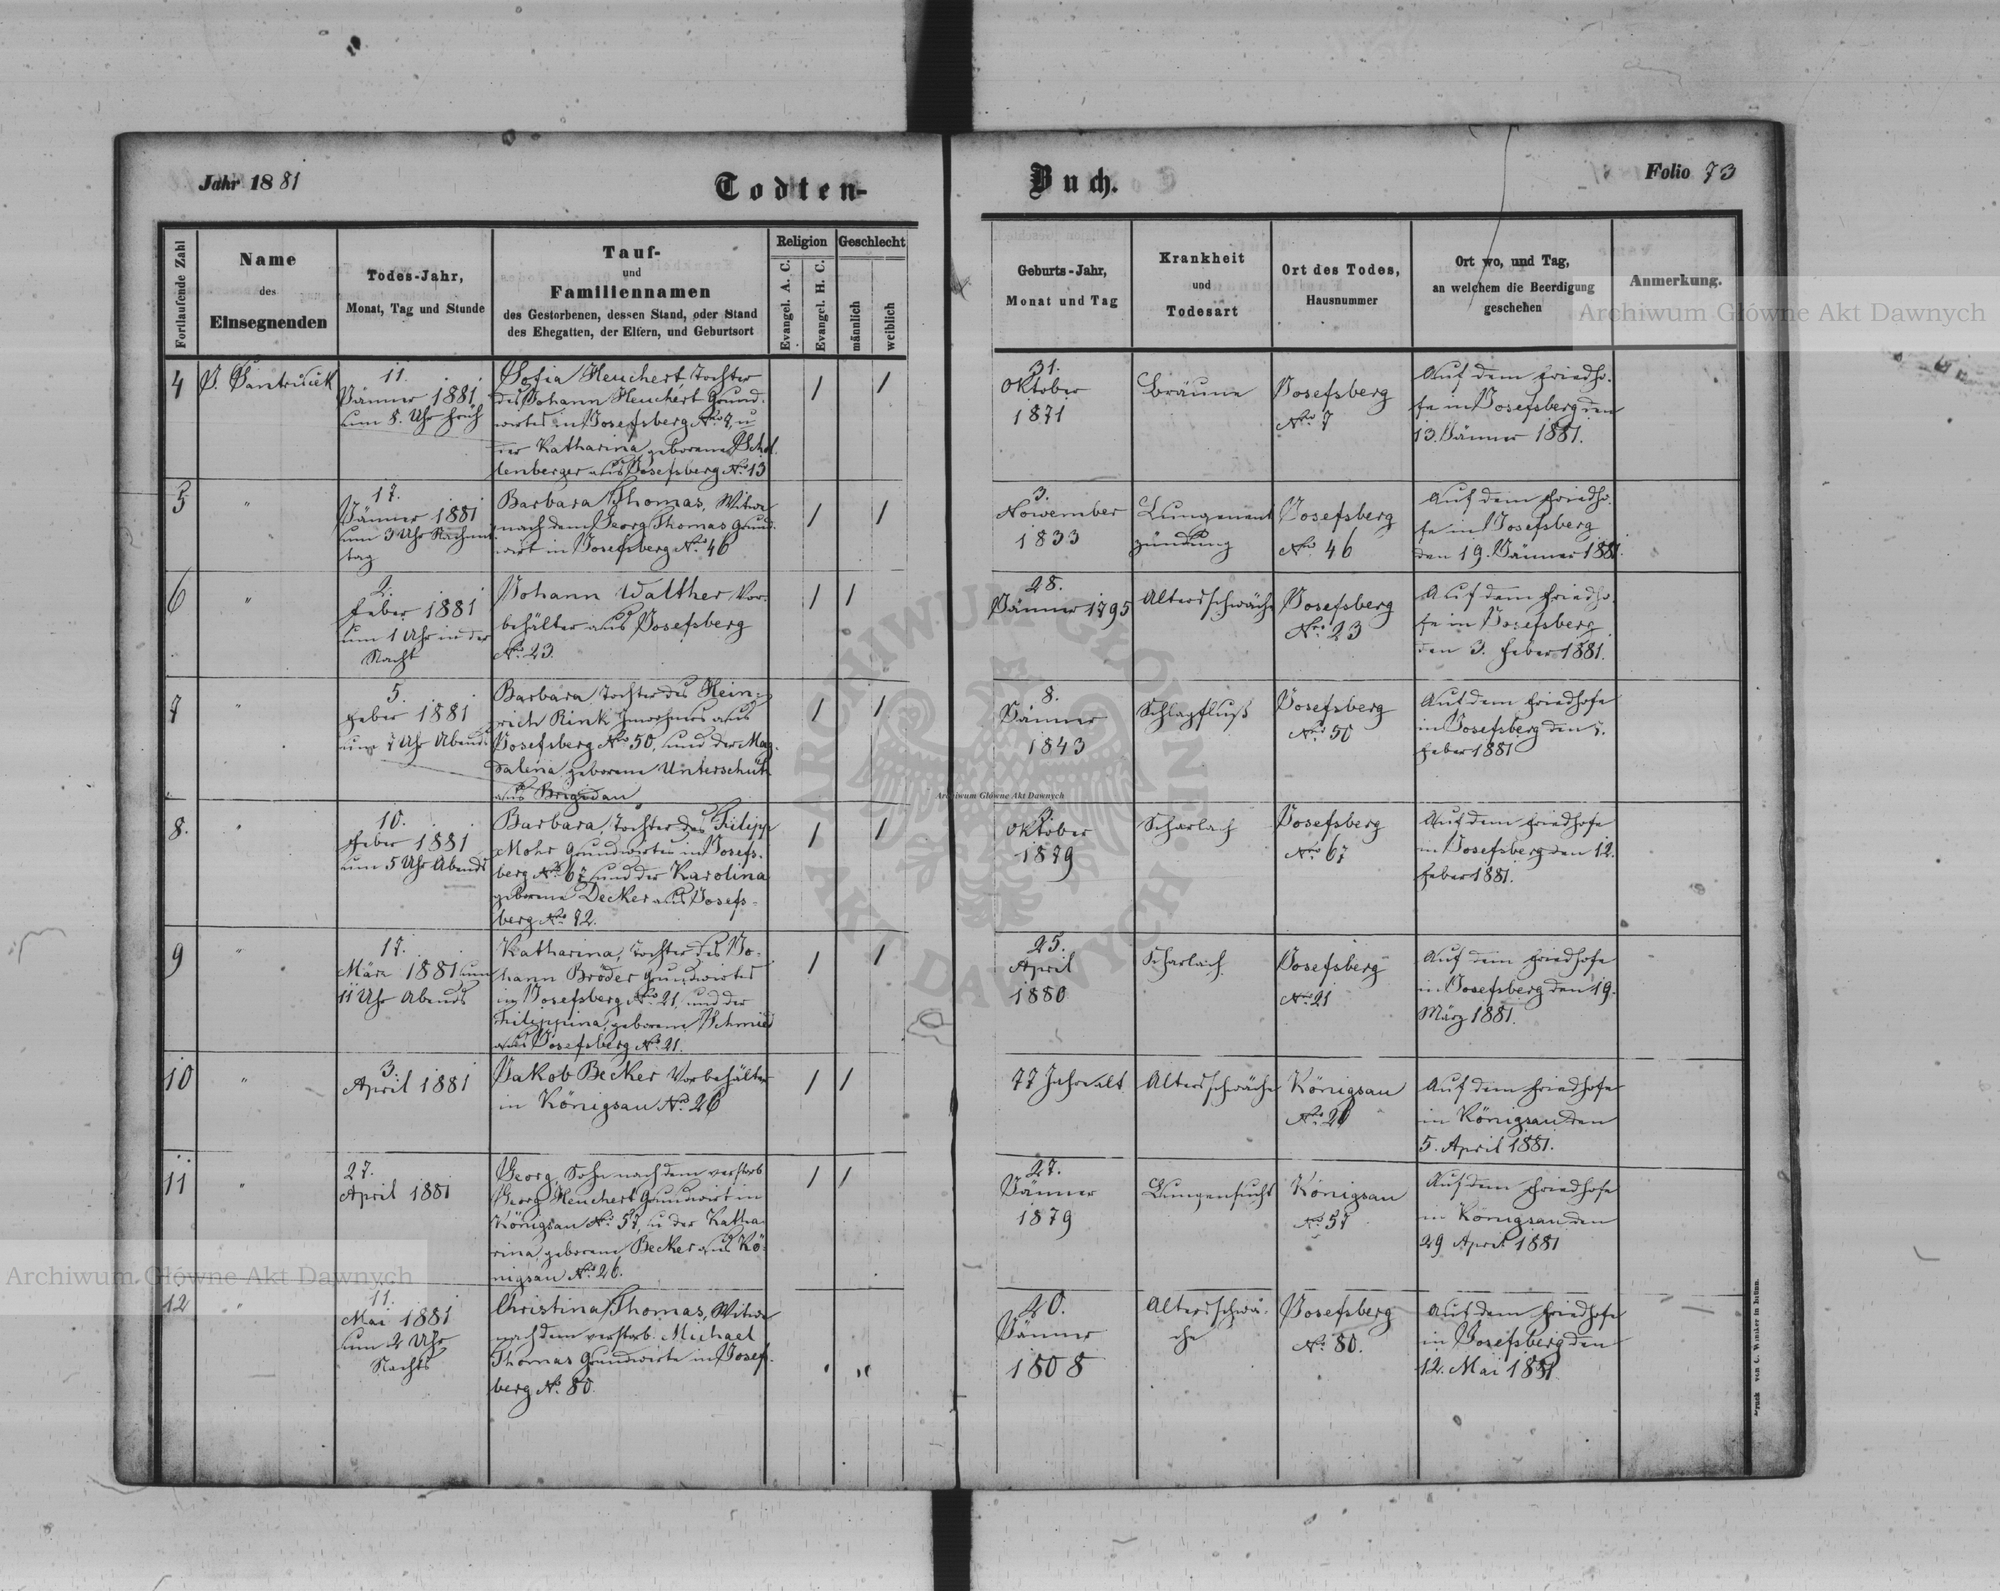 Jahr 1881
Todten-
Buch.
Folio 73
Fortlaufende Zahl
Name
des
Einsegnenden
Todes-Jahr,
Monat, Tag und Stunde
Tauf-
und
Familiennamen
des Gestorbenen, dessen Stand, oder Stand
des Ehegatten, der Eltern, und Geburtsort
Religion
Evangel. A. C.
Evangel. H. C.
Geschlecht
männlich
weiblich
Geburts-Jahr,
Monat und Tag
Krankheit
und
Todesart
Ort des Todes,
Hausnummer
Ort wo, und Tag,
an welchem die Beerdigung
geschehen
Anmerkung.
4
11.
Jänner 1881
um 8. Uhr früh
Sofia Heuchert, Tochter
des Johann Heuchert Grund-
wirtes in Josefsberg No 7, u
der Katharina geborene Schol
lenberger aus Josefsberg No 13
/ /
31.
Oktober
1871
Bräune
Josefsberg
Nro 7
Auf dem Friedho-
fe in Josefsberg den
13. Jänner 1881.
5
"
17.
Jänner 1881
um 3 Uhr Nachmit
tag
Barbara Thomas, Witwe
nach dem Georg Thomas Grund
wirt in Josefsberg No 46
/ /
3.
November
1833
Lungenent
zündung
Josefsberg
Nro 46
Auf dem Friedho-
fe in Josefsberg
den 19. Jänner 1881.
6
"
2.
Feber 1881
um 1 Uhr in der
Nacht
Johann Walther Vor-
behälter aus Josefsberg
No 23.
/ /
28.
Jänner 1795
Altersschwäche
Josefsberg
Nro 23
Auf dem Friedho-
fe in Josefsberg
den 3. Feber 1881.
7
"
5.
Feber 1881
um 7 Uhr Abends
Barbara, Tochter des Hein-
rich Rink Inwohners aus
Josefsberg Nro 50, und der Mag-
dalena geborene Unterschütz
aus Brigidau
/ /
8.
Jänner
1843
Schlagfluß
Josefsberg
Nro 50
Auf dem Friedhofe
in Josefsberg den 7.
Feber 1881
8.
"
10.
Feber 1881
um 5 Uhr Abends
Barbara, Tochter des Filipp
Mohr Grundwirten in Josefs-
berg Nro 67 und der Karolina
geborene Decker aus Josefs-
berg Nro 72.
/ /
9.
Oktober
1879
Scharlach
Josefsberg
Nro 67
Auf dem Friedhofe
in Josefsberg den 12.
Feber 1881.
9
"
17.
März 1881 um
11 Uhr Abends
Katharina, Tochter des Jo-
hann Bröder Grundwirtes
in Josefsberg Nro 21, und der
Filippina, geborene Schmied
aus Josefsberg No 21.
/ /
25.
April
1880
Scharlach
Josefsberg
Nro 21
Auf dem Friedhofe
in Josefsberg den 19.
März 1881.
10
"
3.
April 1881
Jakob Becker Vorbehälter
in Königsau No 26
/ /
77 Jahre alt
Altersschwäche
Königsau
No 26
Auf dem Friedhofe
in Königsau den
5. April 1881.
11
"
27.
April 1881
Georg, Sohn nach dem verstorb
Georg Heuchert Grundwirt in
Königsau No 57, u der Katha
rina, geborene Becker aus Kö-
nigsau No 26.
/ /
27.
Jänner
1879
Lungensucht
Königsau
No 57
Auf dem Friedhofe
in Königsau den
29 April 1881
12
"
11.
Mai 1881
um 2 Uhr
Nachts
Christina Thomas, Witwe
nach dem verstorb. Michael
Thomas Grundwirte in Josefs-
berg No 80.
20.
Jänner
1808
Altersschwä-
che
Josefsberg
No 80.
Auf dem Friedhofe
in Josefsberg den
12. Mai 1881.
von C. Winiker in Brünn.
Archiwum Główne Akt Dawnych
Archiwum Główne Akt Dawnych
Archiwum Główne Akt Dawnych
ARCHIWUM GŁÓWNE
AKT DAWNYCH